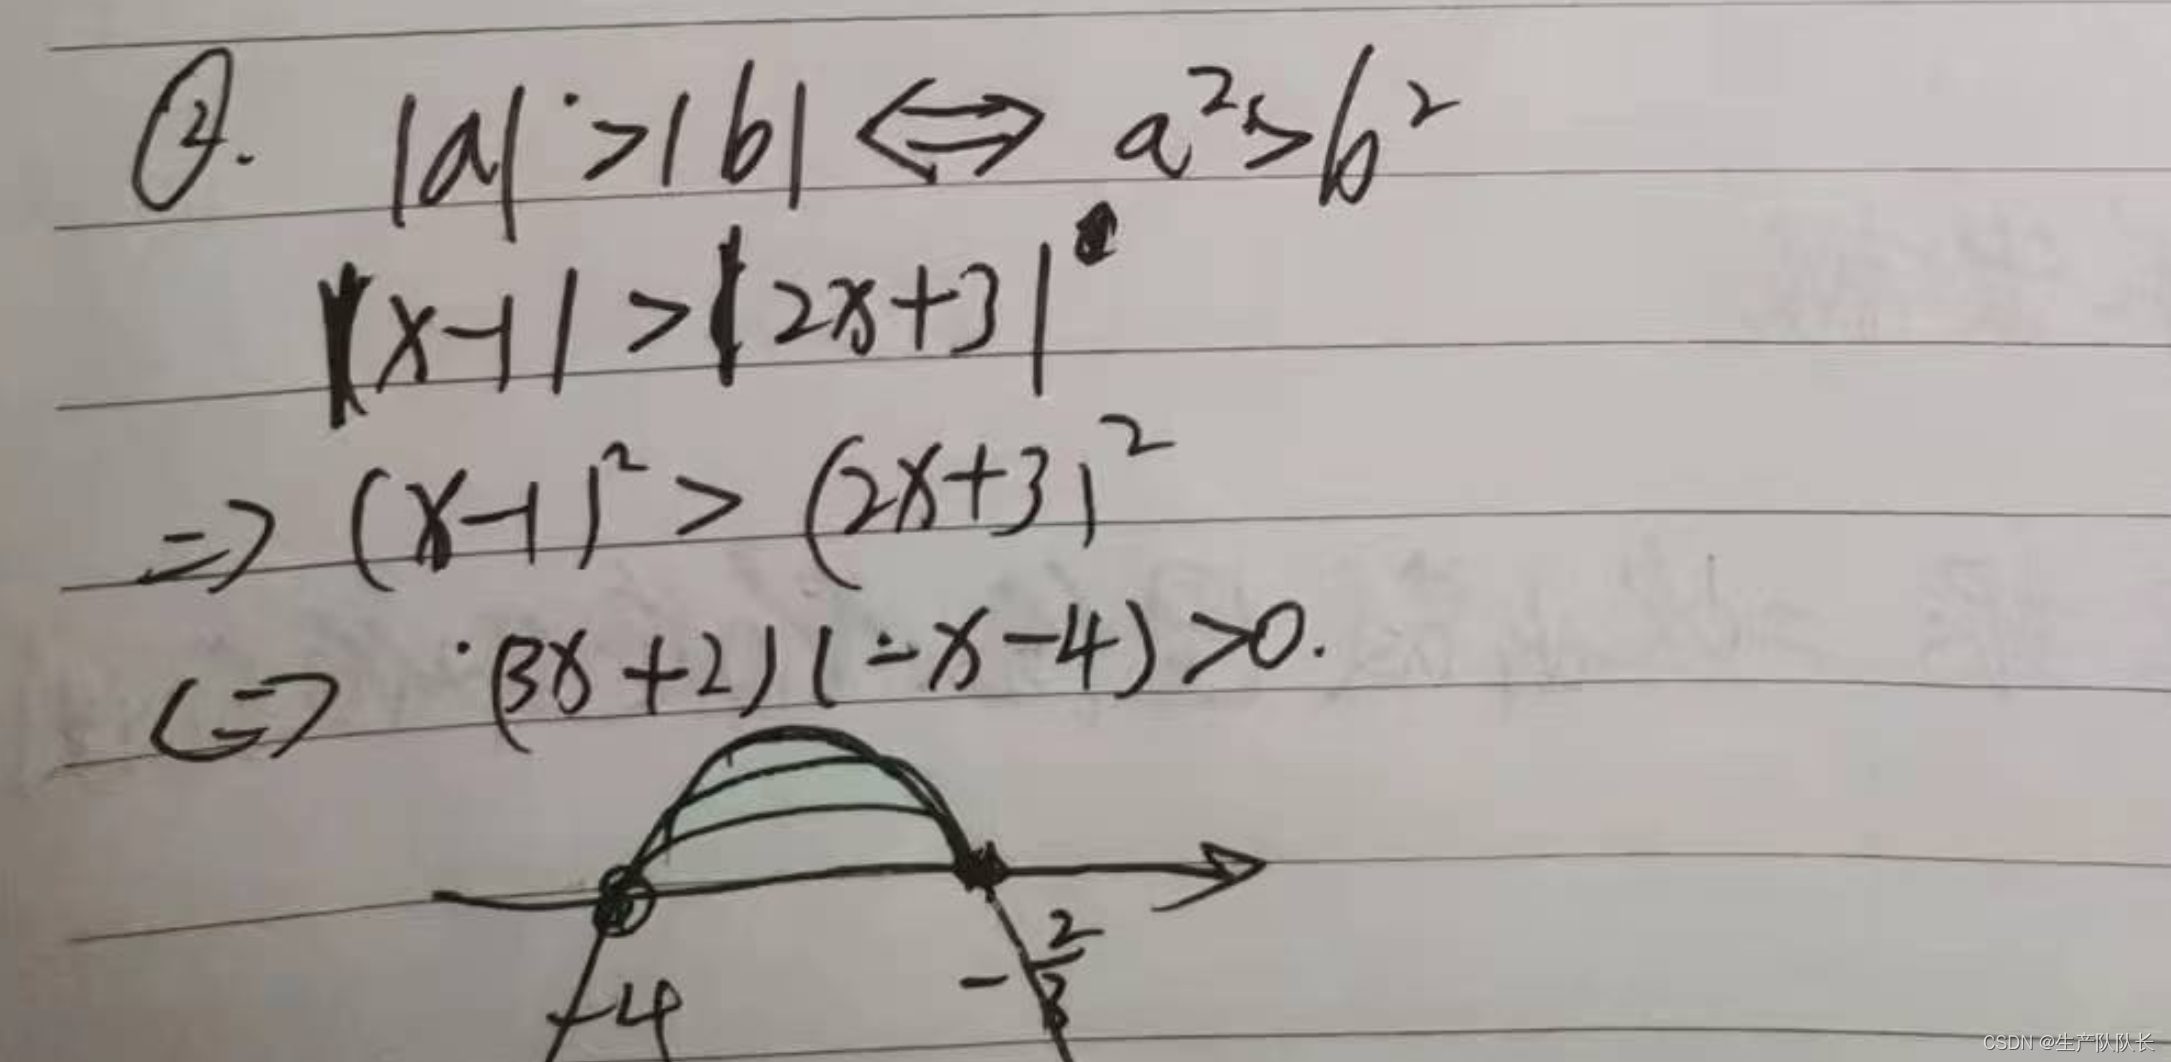 ②. |a|>|b| ⇔ a²>b²
|x-1|>|2x+3|
⇒ (x-1)²>(2x+3)²
⇔ (3x+2)(-x-4)>0.
-4
-2/3
CSDN @生产队队长